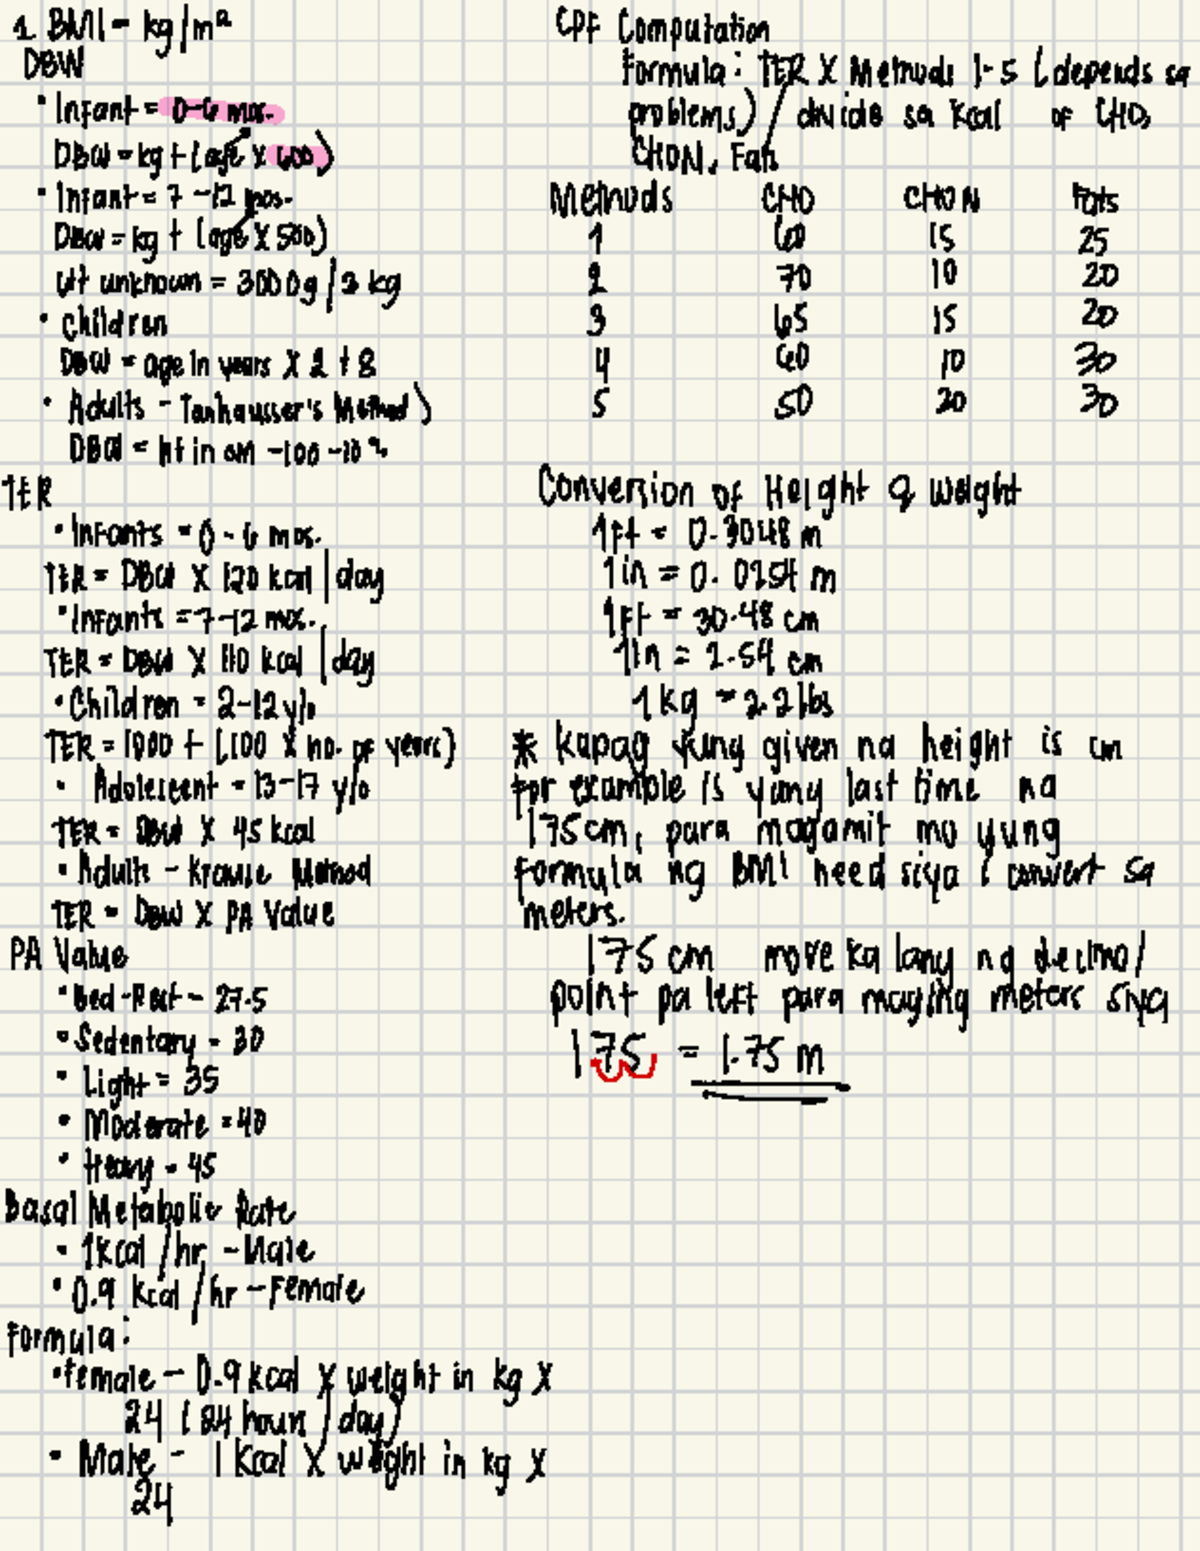 1. BMI = kg/m²
DBW
• Infant = 0-6 mos.
DBW = kg + (age x 600)
• Infant = 7-12 mos.
DBW = kg + (age x 500)
Wt unknown = 3000g/3 kg
• Children
DBW = age in years x 2 + 8
• Adults - Tanhausser's Method)
DBW = ht in cm -100 -10%
TER
• Infants = 0-6 mos.
TER = DBW x 120 kcal/day
• Infants = 7-12 mos.
TER = DBW x 110 kcal/day
• Children = 2-12 y/o
TER = 1000 + (100 x no. of years)
• Adolescent = 13-17 y/o
TER = DBW x 45 kcal
• Adults - Krause Method
TER = DBW x PA Value
PA Value
• Bed-Rest - 27.5
• Sedentary - 30
• Light = 35
• Moderate = 40
• Heavy - 45
Basal Metabolic Rate
• 1kcal/hr, - Male
• 0.9 kcal/hr - Female
Formula:
• female - 0.9 kcal x weight in kg x
24 (24 hours/day)
• Male - 1 Kcal x weight in kg x
24
CPF Computation
Formula: TER X Methods 1-5 (depends sa
problems) / divide sa Kcal of CHO,
CHON, Fats
Methods CHO CHON Fats
1 60 15 25
2 70 10 20
3 65 15 20
4 60 10 30
5 50 20 30
Conversion of Height & weight
1ft = 0.3048 m
1in = 0.0254 m
1ft = 30.48 cm
1in = 2.54 cm
1kg = 2.2lbs
* kapag yung given na height is cm
for example is yung last time na
175cm, para magamit mo yung
formula ng BMI need siya i convert sa
meters.
175 cm move ka lang ng decimal
point pa left para maging meters siya
175 = 1.75 m